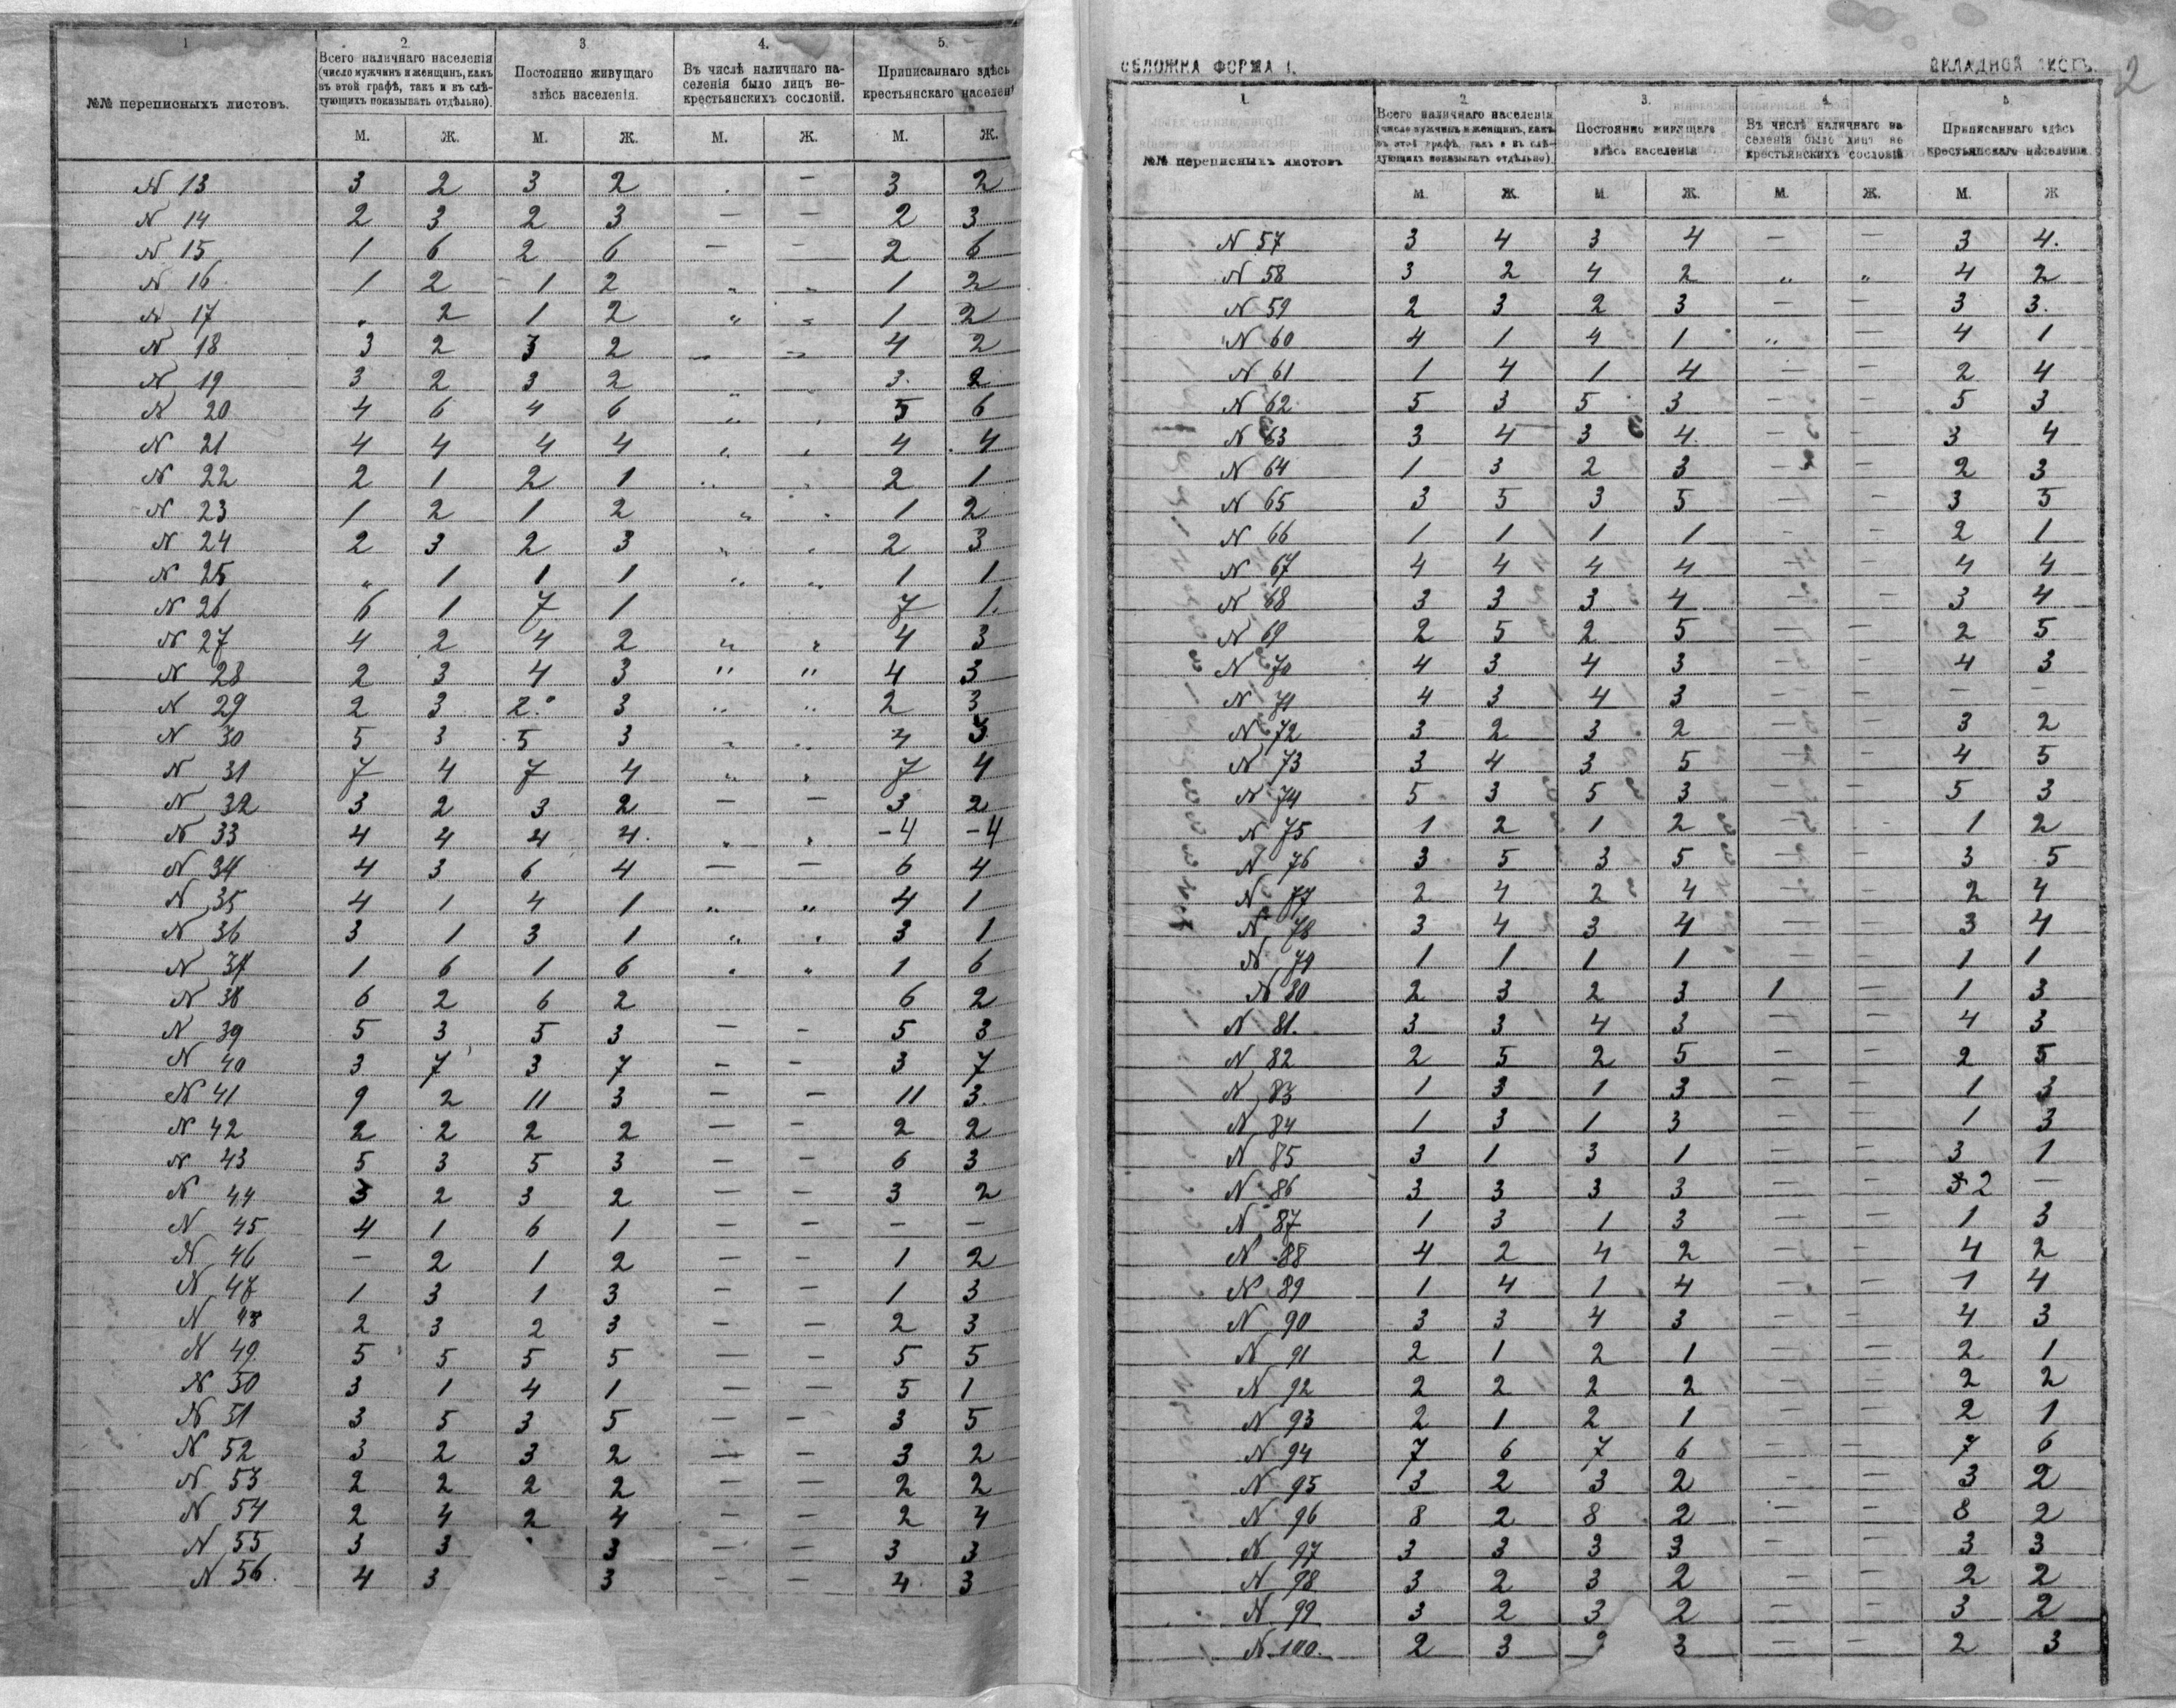 1 2. 3. 4. 5.
№№ переписныхъ листовъ.
Всего наличнаго населенія
(число мужчинъ и женщинъ, какъ
въ этой графѣ, такъ и въ слѣ-
дующихъ показывать отдѣльно).
Постоянно живущаго
здѣсь населенія.
Въ числѣ наличнаго на-
селенія было лицъ не-
крестьянскихъ сословій.
Приписаннаго здѣсь
крестьянскаго населен
М. Ж. М. Ж. М. Ж. М. Ж.
N 13 3 2 3 2 . — 3 2
N 14 2 3 2 3 — — 2 3
N 15 1 6 2 6 — — 2 6
N 16. 1 2 1 2 " " 1 2
N 17 " 2 1 2 " " 1 2
N 18 3 2 3 2 " " 4 2
N 19 3 2 3 2 " " 3. 2
N 20 4 6 4 6 " " 5 6
N 21 4 4 4 4 " " 4 4
N 22 2 1 2 1 " " 2 1
N 23 1 2 1 2 " " 1 2
N 24 2 3 2 3 " " 2 3
N 25 " 1 1 1 " " 1 1
N 26 6 1 7 1 7 1.
N 27 4 2 4 2 " " 4 3
N 28 2 3 4 3 " " 4 3
N 29 2 3 2. 3 " " 2 3
N 30 5 3 5 3 " " 4 3
N 31 7 4 7 4 " " 7 4
N 32 3 2 3 2 — — 3 2
N 33 4 4 4 4. " " -4 -4
N 34 4 3 6 4 — — 6 4
N 35 4 1 4 1 " " 4 1
N 36 3 1 3 1 " " 3 1
N 37 1 6 1 6 " " 1 6
N 38 6 2 6 2 6 2
N 39 5 3 5 3 — — 5 3
N 40 3 7 3 7 — — 3 7
N 41 9 2 11 3 — — 11 3.
N 42 2 2 2 2 — — 2 2
N 43 5 3 5 3 — — 6 3
N 44 3 2 3 2 — — 3 2
N 45 4 1 6 1 — — — —
N 46 — 2 1 2 — — 1 2
N 47 1 3 1 3 — — 1 3
N 48 2 3 2 3 — — 2 3
N 49 5 5 5 5 — — 5 5
N 50 3 1 4 1 — — 5 1
N 51 3 5 3 5 — — 3 5
N 52 3 2 3 2 — — 3 2
N 53 2 2 2 2 — — 2 2
N 54 2 4 2 4 — — 2 4
N 55 3 3 3 — — 3 3
N 56. 4 3 3 — — 4 3
ОБЛОЖКА ФОРМА 1. ВКЛАДНОЙ ЛИСТЪ. 2
1. 2 3. 4. 5.
№№ переписныхъ листовъ
Всего наличнаго населенія
(число мужчинъ и женщинъ, какъ
въ этой графѣ, такъ и въ слѣ-
дующихъ показывать отдѣльно)
Постоянно живущаго
здѣсь населенія
Въ числѣ наличнаго на
селенія было лицъ не
крестьянскихъ сословій
Приписаннаго здѣсь
крестьянскаго населенія
М. Ж. М. Ж. М. Ж. М. Ж
N 57 3 4 3 4 — — 3 4.
N 58 3 2 4 2 " " 4 2
N 59 2 3 2 3 — — 3 3.
N 60 4 1 4 1 " — 4 1
N 61 1 4 1 4 — — 2 4
N 62 5 3 5 3 — — 5 3
N 63 3 4 3 4 — — 3 4
N 64 1 3 2 3 — — 2 3
N 65 3 5 3 5 — — 3 5
N 66 1 1 1 1 — — 2 1
N 67 4 4 4 4 — — 4 4
N 68 3 3 3 4 — — 3 4
N 69 2 5 2 5 — — 2 5
N 70 4 3 4 3 — — 4 3
N 71 4 3 4 3 — — — —
N 72 3 2 3 2 — — 3 2
N 73 3 4 3 5 — — 4 5
N 74 5 3 5 3 — — 5 3
N 75 1 2 1 2 — — 1 2
N 76 3 5 3 5 — — 3 5
N 77 2 4 2 4 — — 2 4
N 78 3 4 3 4 — — 3 4
N 79 1 1 1 1 — — 1 1
N 80 2 3 2 3 1 — 1 3
N 81. 3 3 4 3 — — 4 3
N 82 2 5 2 5 — — 2 5
N 83 1 3 1 3 — — 1 3
N 84 1 3 1 3 — — 1 3
N 85 3 1 3 1 — — 3 1
N 86 3 3 3 3 — — 2 —
N 87 1 3 1 3 — — 1 3
N 88 4 2 4 2 — — 4 2
N 89 1 4 1 4 — — 1 4
N 90 3 3 4 3 — — 4 3
N 91 2 1 2 1 — — 2 1
N 92 2 2 2 2 — — 2 2
N 93 2 1 2 1 — — 2 1
N 94 7 6 7 6 — — 7 6
N 95 3 2 3 2 — — 3 2
N 96 8 2 8 2 — — 8 2
N 97 3 3 3 3 — — 3 3
N 98 3 2 3 2 — — 2 2
N 99 3 2 3 2 — — 3 2
N 100. 2 3 3 — — 2 3